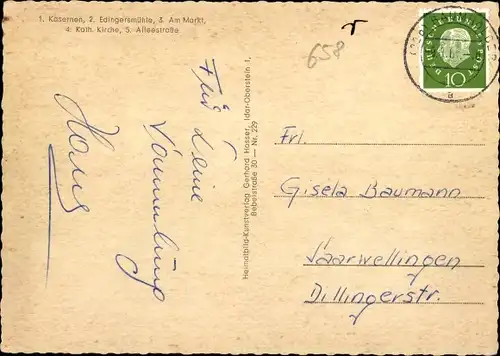 1. Kasernen, 2. Edingersmühle, 3. Am Markt,
4. Kath. Kirche, 5. Alleestraße
658
DEUTSCHE BUNDESPOST
10
a
Für Deine
Sammlung
Hans
Heimatbild-Kunstverlag Gerhard Hosser, Idar-Oberstein 1,
Beberstraße 30 — Nr. 229
Frl.
Gisela Baumann
Saarwellingen
Dillingerstr.